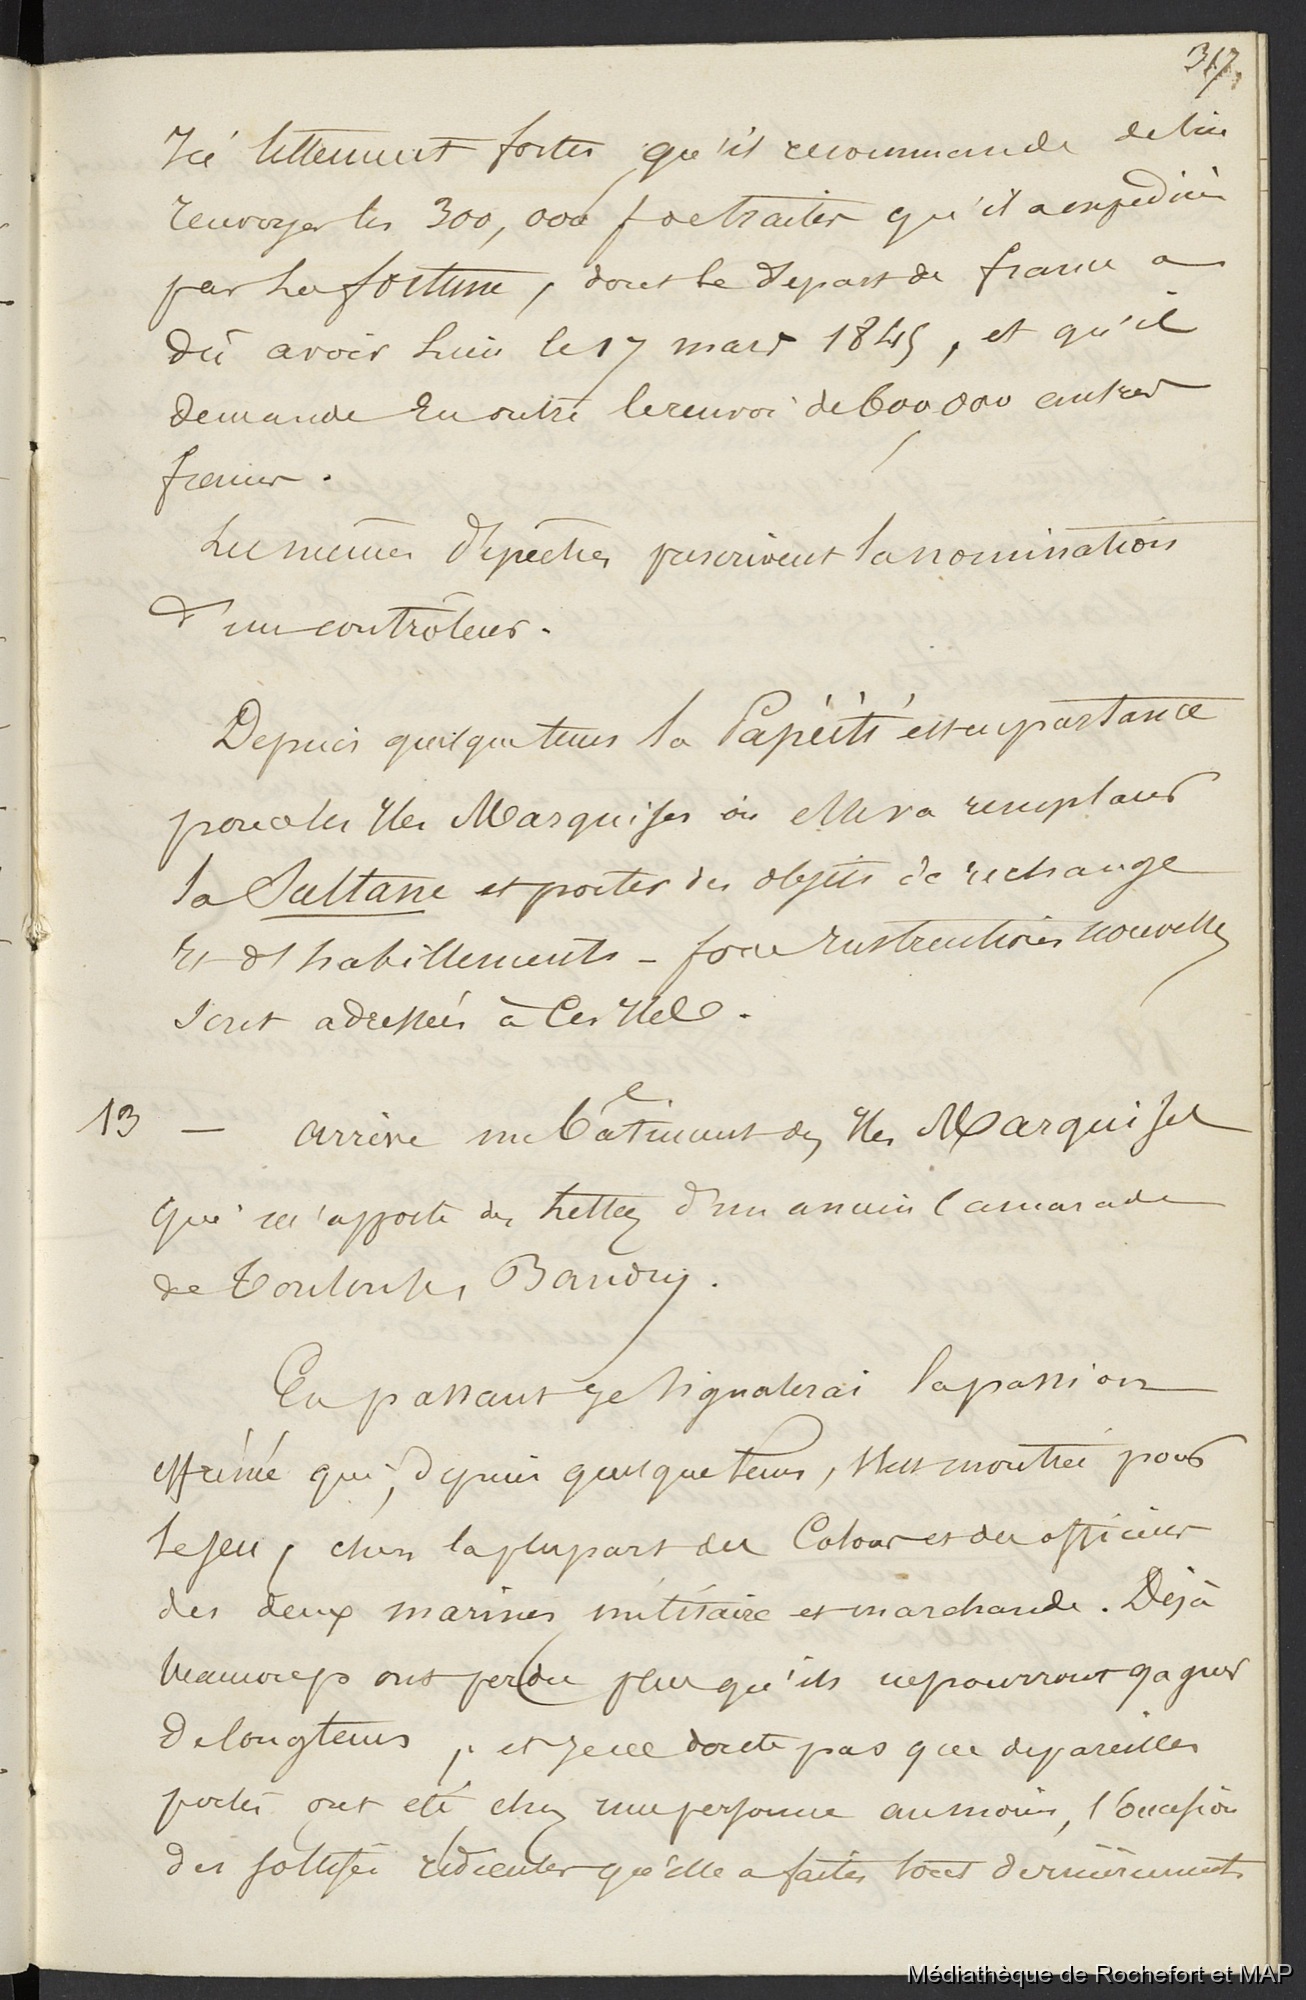 317.
été tellement fortes qu'il recommande de lui
renvoyer les 300,000 f de traites qu'il a expédiées
par La fortune, dont le départ de france a
dû avoir lieu le 17 mars 1845, et qu'il
demande en outre le renvoi de 600,000 autres
francs.
Les mêmes dépêches prescrivent la nomination
d'un contrôleur.
Depuis quelque tems la Papéïti est en partance
pour les Iles Marquises où elle va remplacer
la Sultane et porter des objets de rechange
et d'habillements - force instructions nouvelles
sont adressées à ces Iles.
13 — arrive un bâtiment des Iles Marquises
qui m'apporte des lettres d'un ancien camarade
de Toulouse, Baudry.
En passant je signalerai la passion
effrénée qui, depuis quelque tems, s'est montrée pour
le jeu, chez la plupart des Colons et des officiers
des deux marines militaire et marchande. Déjà
beaucoup ont perdu plus qu'ils ne pourront gagner
de longtems, et je ne doute pas que de pareilles
pertes ont été chez une personne au moins, l'occasion
des sottises ridicules qu'elle a faites tout dernièrement
Médiathèque de Rochefort et MAP